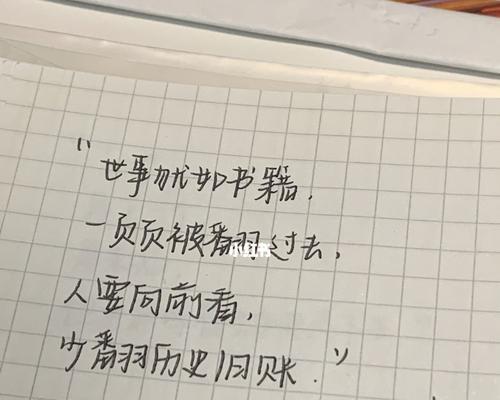 “世事犹如书籍.
一页页被翻过去,
人要向前看,
少翻历史旧账.”
小红书